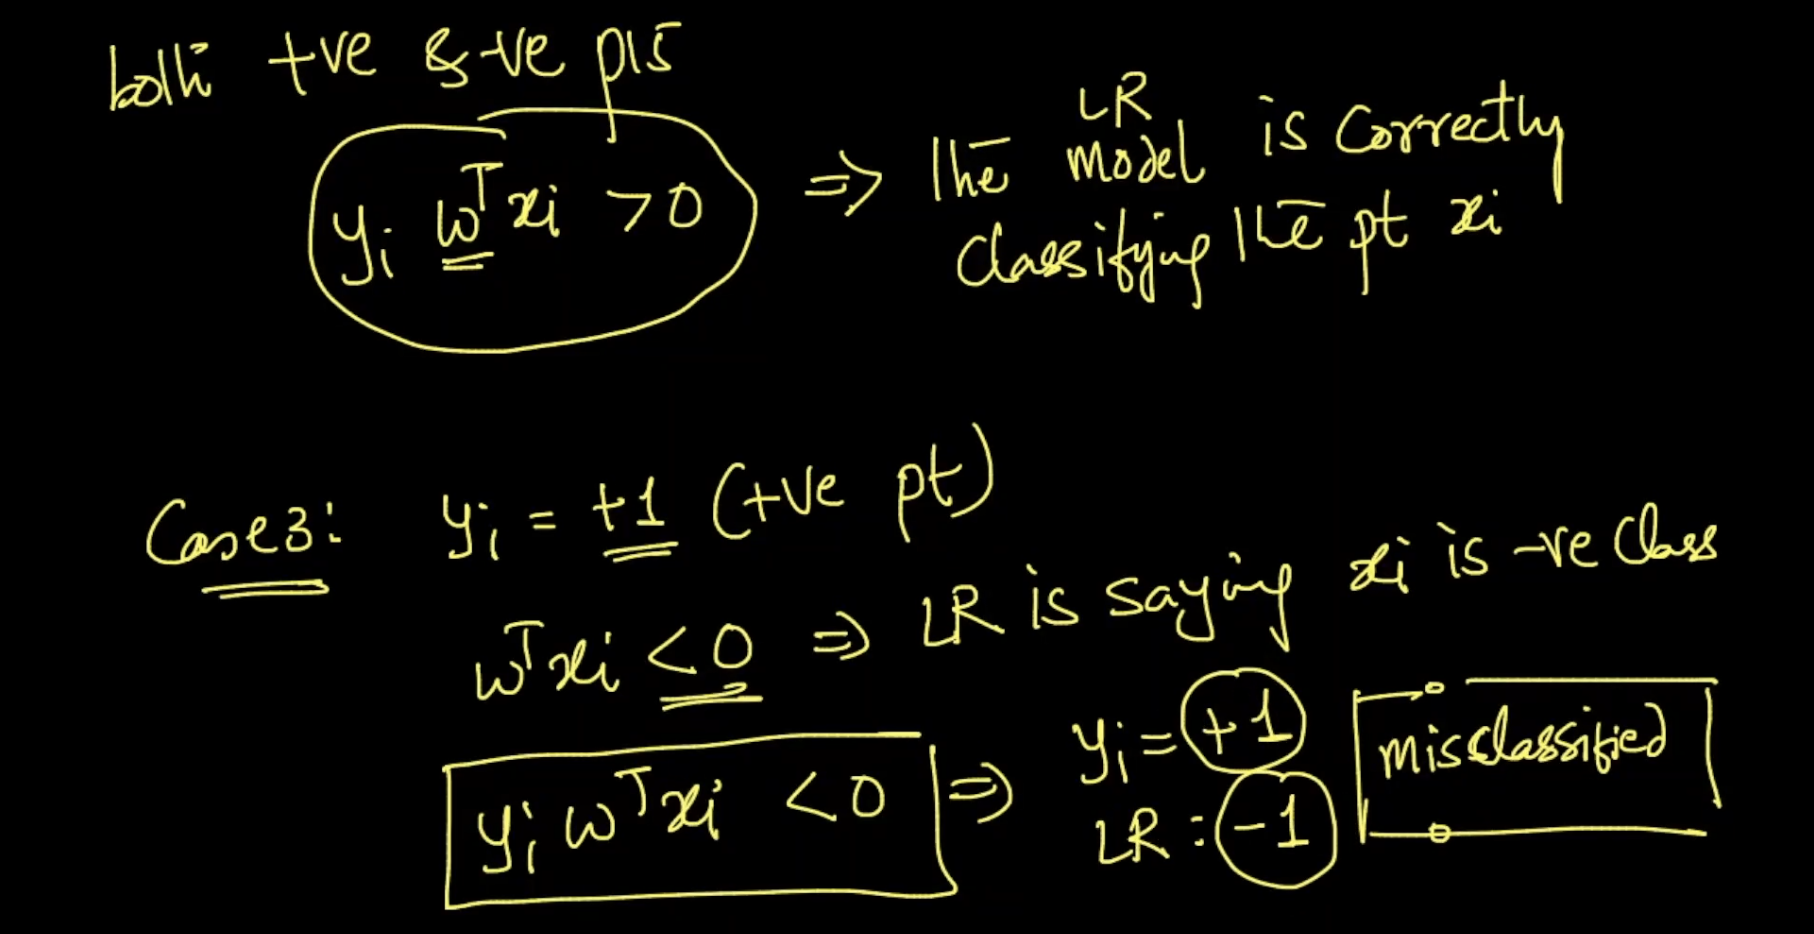 both +ve & -ve pts
yᵢ wᵀxᵢ > 0 ⇒ the LR model is correctly
classifying the pt xᵢ
Case 3: yᵢ = +1 (+ve pt)
wᵀxᵢ < 0 ⇒ LR is saying xᵢ is -ve class
yᵢ wᵀxᵢ < 0 ⇒ yᵢ = +1 misclassified
LR : -1